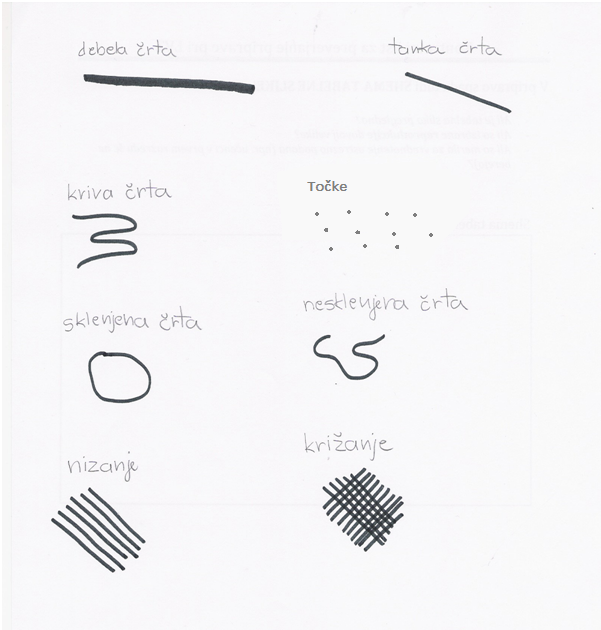 debela črta
tanka črta
kriva črta
Točke
sklenjena črta
nesklenjena črta
nizanje
križanje